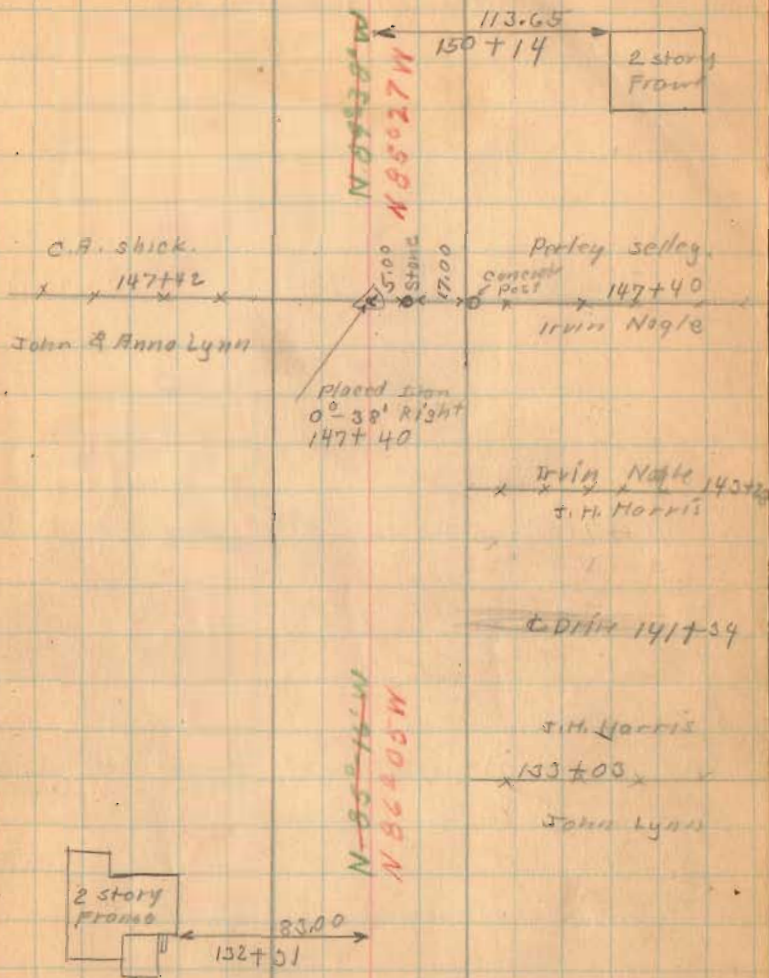 113.65
150 + 14
2 story
Frame
N 85° 27 W
C.A. Shick.
147+42
John & Anna Lynn
5.00
Stone
17.00
Concrete
Post
Perley Selley.
147+40
Irvin Nagle
Placed Iron
0°-38' Right
147+40
Irvin Nagle
J.H. Harris
℄ Drive 141+34
N 86° 05 W
J.H. Harris
133+03
John Lynn
2 story
Frame
83.00
132+31